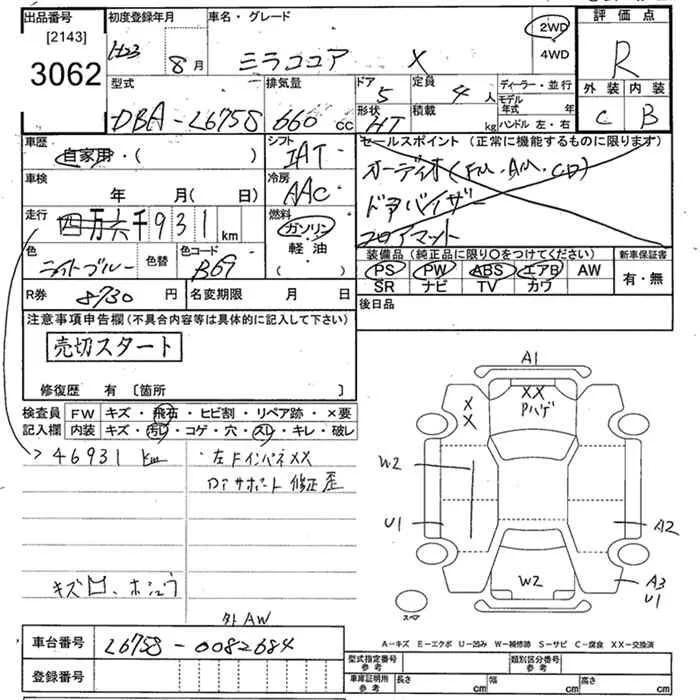 出品番号 初度登録年月 車名・グレード 評価点
[2143]
3062
H23 8月 ミラココア X 2WD
4WD
R
型式 排気量 ドア 定員 ディーラー・並行 外装 内装
DBA-L675S 660cc 5 4人 モデル年式 年
形状 積載 ハンドル 左・右
HT kg
C B
車歴 シフト セールスポイント(正常に機能するものに限ります)
自家用・( ) IAT オーディオ(FM・AM・CD)
車検 冷房
年 月(日) AAC ドアバイザー
走行 燃料
四万六千931km ガソリン フロアマット
軽油
色 色替 色コード
ライトブルー B69
装備品(純正品に限り○をつけてください) 新車保証書
PS PW ABS エアB AW 有・無
SR ナビ TV カワ
R券 8730円 名変期限 月 日
後日品
注意事項申告欄(不具合内容等は具体的に記入して下さい)
売切スタート
修復歴 有〔箇所 〕
検査員 FW キズ・飛石・ヒビ割・リペア跡・×要
記入欄 内装 キズ・汚レ・コゲ・穴・スレ・キレ・破レ
46931km 左FインパネXX
修正歪
キズ
外AW
A1
XX
Pハゲ
X
X
W2
U1
A2
W2
A3
U1
スペア
A-キズ E-エクボ U-凹み W-補修跡 S-サビ C-腐食 XX-交換済
車台番号 L675S-0082684
登録番号
型式指定番号 参考 類別区分番号 参考
車庫証明用 参考 長さ cm 幅 cm 高さ cm